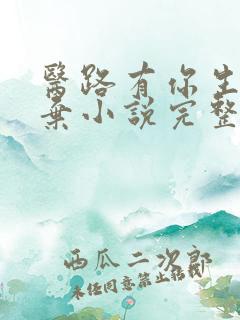 醫路有你生
棄小說完整
西瓜二次郎
未经同意禁止转载